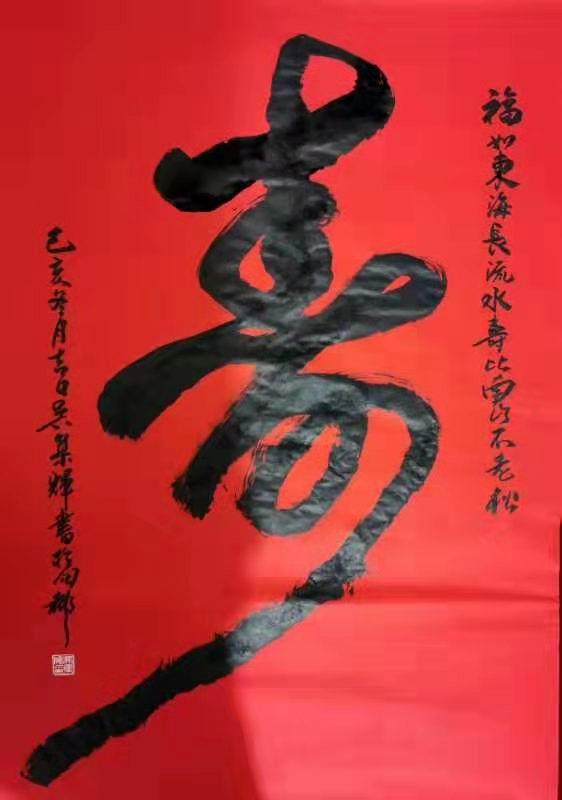 福如東海長流水壽比南山不老松
壽
己亥冬月吉日吴集輝書於